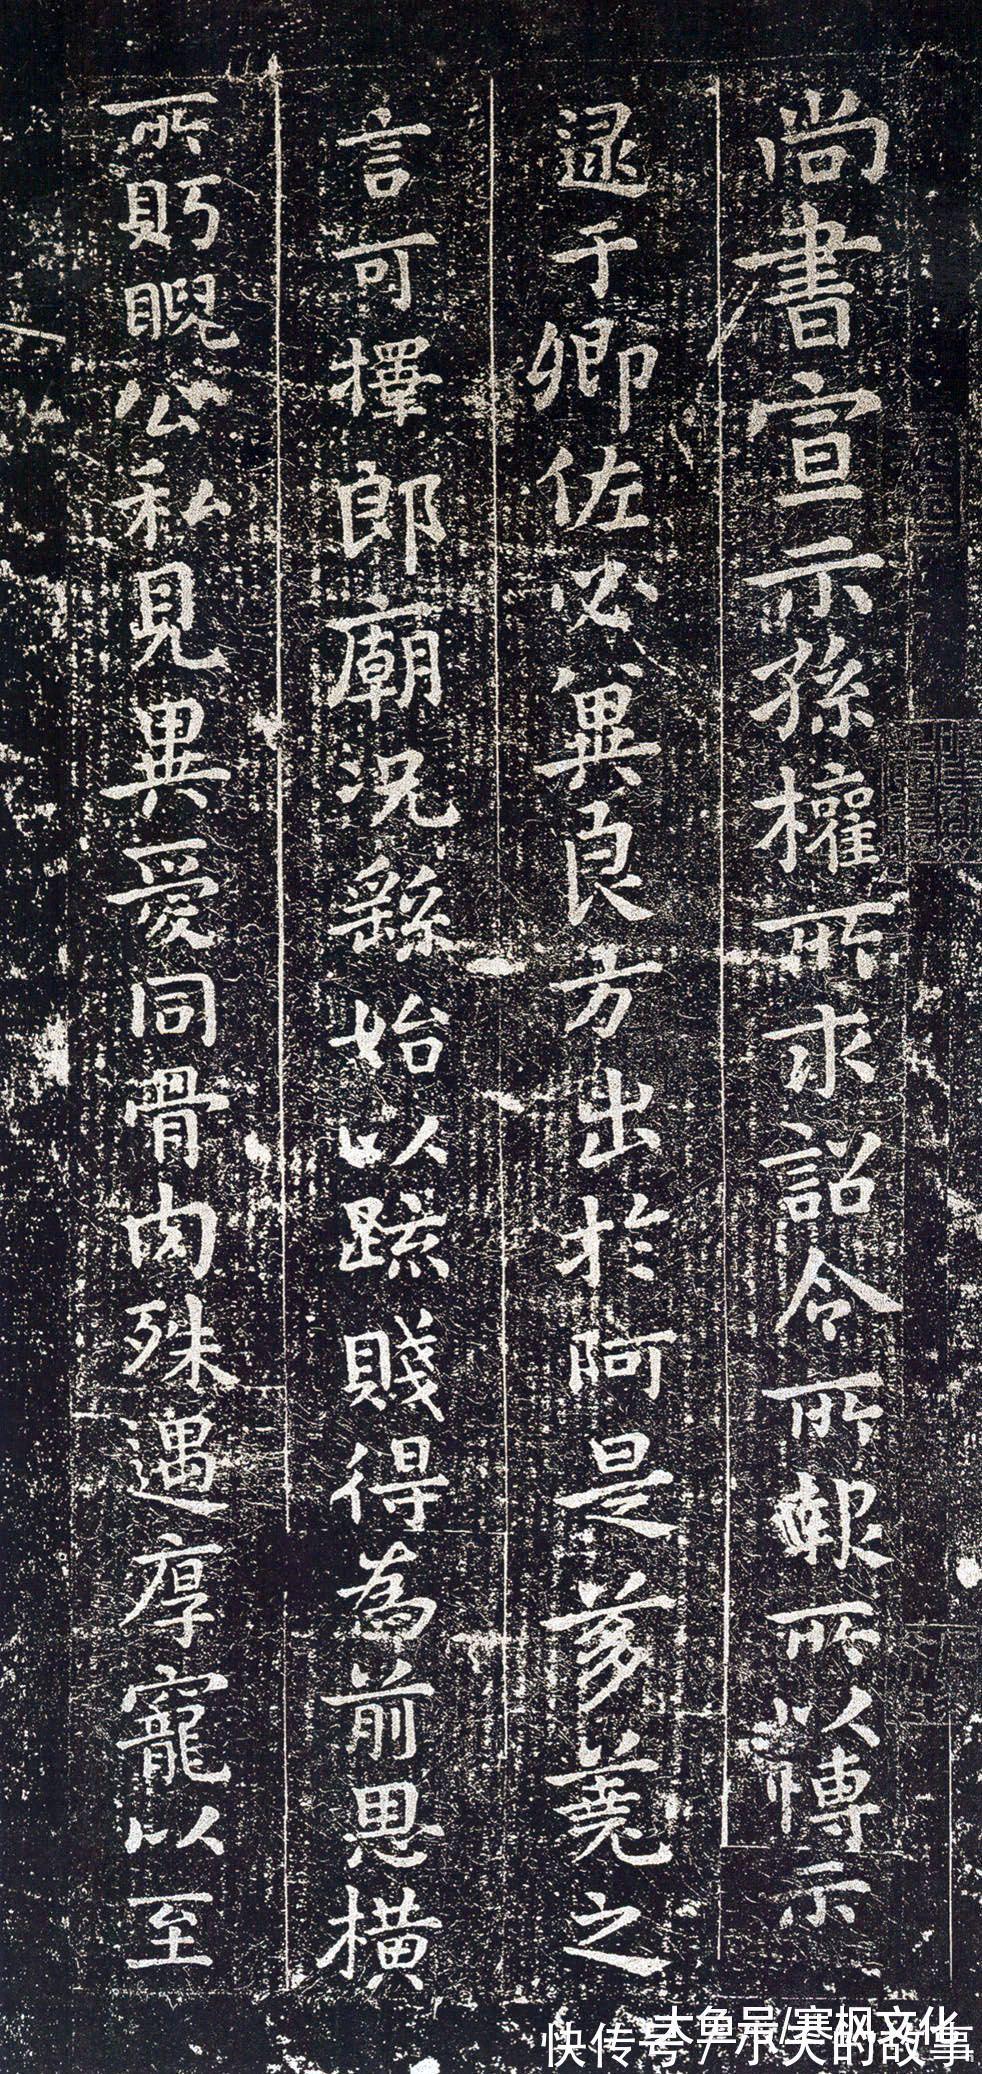 尚書宣示孫權所求詔令所報所以博示
逮于卿佐必冀良方出於阿是芻蕘之
言可擇郎廟況繇始以疏賤得為前恩橫
所眄睨公私見異愛同骨肉殊遇厚寵以至
大鱼号/寒枫文化
快传号/小夫的故事